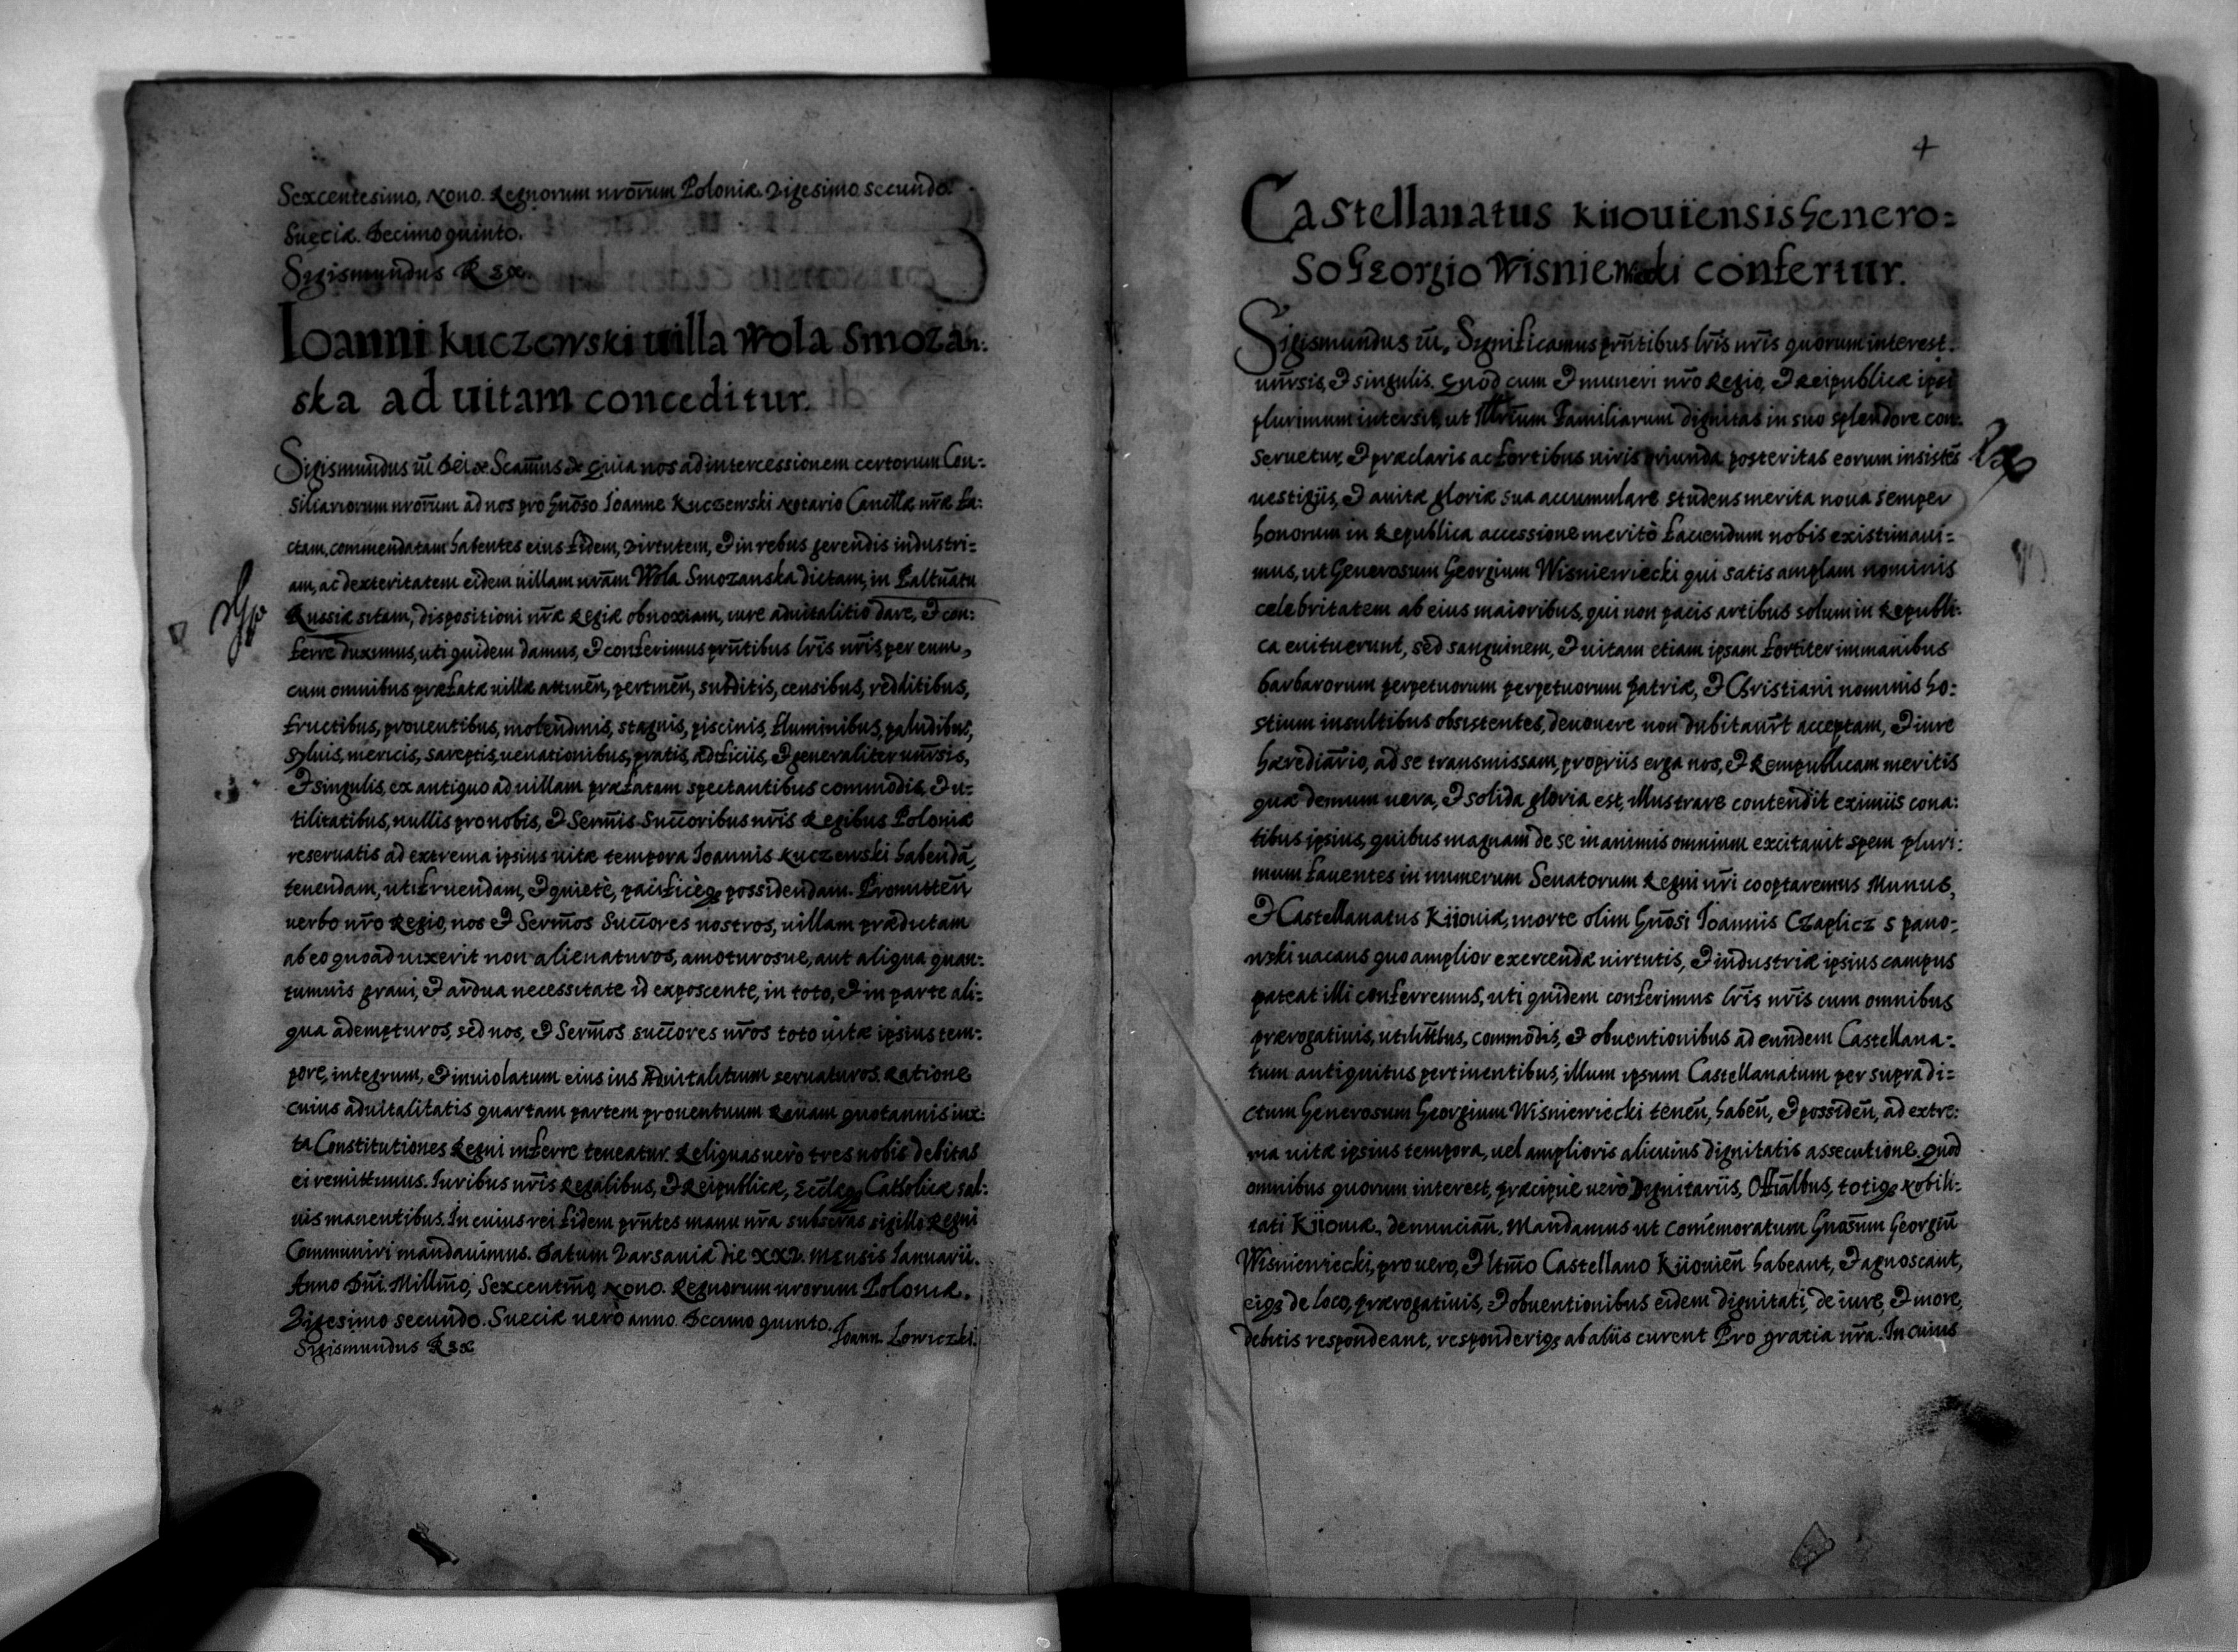 Sexcentesimo, Nono. Regnorum nrōrum Poloniæ Vigesimo secundo.
Sueciæ. Decimo quinto.
Sigismundus Rex.
Ioanni Kuczewski uilla Wola Smozan:
ska ad uitam conceditur.
Sigismundus iii Dei &c Scam̄us &c Quia nos ad intercessionem certorum Con:
siliariorum nrōrum ad nos pro Gnōso Ioanne Kuczewski Notario Cancellæ nrǣ fa:
ctam, commendatam habentes eius fidem, Virtutem, & in rebus gerendis industri=
am, ac dexteritatem eidem uillam nrām Wola Smozanska dictam, in Palt̄uatu
Russiæ sitam, dispositioni nrǣ Regiæ obnoxiam, iure aduitalitio dare, & con:
ferre duximus, uti quidem damus, & conferimus prn̄tibus lrīs nrīs per eum,
cum omnibus præfatæ uillæ attinen̄, pertinen̄, subditis, censibus, redditibus,
fructibus, prouentibus, molendinis, stagnis, piscinis, fluminibus, paludibus,
syluis, mericis, sareptis, uenationibus, pratis, ædificiis, & generaliter un̄rsis,
& singulis, ex antiquo ad uillam præfatam spectantibus commodis, & u=
tilitatibus, nullis pro nobis, & Serm̄is Succ̄oribus nrīs Regibus Poloniæ
reseruatis ad extrema ipsius uitæ tempora Ioannis Kuczewski habendā,
tenendam, utifruendam, & quietè, pacificèq3 possidendam. Promitten̄
uerbo nrō Regio, nos & Serm̄os Succ̄ores nostros, uillam prædictam
ab eo quoad uixerit non alienaturos, amoturosue, aut aliqua quan:
tumuis graui, & ardua necessitate id exposcente, in toto, & in parte ali:
qua adempturos, sed nos, & Serm̄os succ̄ores nrōs toto uitæ ipsius tem:
pore, integrum, & inuiolatum eius ius Aduitalitium seruaturos. Ratione
cuius aduitalitatis quartam partem prouentuum Rauam quotannis iux:
ta Constitutiones Regni inferre teneatur. Reliquas uerò tres nobis debitas
ei remittimus. Iuribus nrīs Regalibus, & Reipublicæ, Eccl̄æq3 Catholicæ sal:
uis manentibus. In cuius rei fidem prn̄tes manu nrā subscr̄as sigillo Regni
Communiri mandauimus. Datum Varsauiæ die XXV. Mensis Ianuarii.
Anno Dn̄i. Millm̄o, Sexcentm̄o, Nono. Regnorum nrorum Poloniæ.
Vigesimo secundo. Sueciæ uerò anno. Decimo quinto.
Sigismundus Rex.
Ioann. Lowiczki.
4
Castellanatus Kiiouiensis Genero=
so Georgio Wisniewiecki confertur.
Sigismundus iii. Significamus prn̄tibus lrīs nrīs quorum interest.
un̄rsis, & singulis. Quod cum & muneri nrō Regio, & Reipublicæ ipsi
plurimum intersit, ut Illriūm Familiarum dignitas in suo splendore con:
seruetur, & præclaris ac fortibus uiris oriunda posteritas eorum insistēs
uestigiis, & auitæ gloriæ sua accumulare studens merita noua semper
honorum in Republica accessione meritò fauendum nobis existimaui=
mus, ut Generosum Georgium Wisniewiecki qui satis amplam nominis
celebritatem ab eius maioribus, qui non pacis artibus solum in Republi:
ca enituerunt, sed sanguinem, & uitam etiam ipsam fortiter immanibus
barbarorum perpetuorum perpetuorum patriæ, & Christiani nominis ho:
stium insultibus obsistentes, deuouere non dubitaur̄t acceptam, & iure
hærediār̄io, ad se transmissam, propriis erga nos, & Rempublicam meritis
quæ demum uera, & solida gloria est, illustrare contendit eximiis cona:
tibus ipsius, quibus magnam de se in animis omnium excitauit spem pluri:
mum fauentes in numerum Senatorum Regni nrī cooptaremus Munus,
& Castellanatus Kiiouiæ, morte olim Gnōsi Ioannis Czaplicz Spano:
wski uacans quo amplior exercendæ uirtutis, & industriæ ipsius campus
pateat illi conferremus, uti quidem conferimus lrīs nrīs cum omnibus
prærogatiuis, utilitt̄bus, commodis, & obuentionibus ad eundem Castellana=
tum antiquitus pertinentibus, illum ipsum Castellanatum per supradi=
ctum Generosum Georgium Wisniewiecki tenen̄, haben̄, & possiden̄, ad extre:
ma uitæ ipsius tempora, uel amplioris alicuius dignitatis assecutione. Quod
omnibus quorum interest, præcipuè uerò Dignitariis, Offiāl̄bus, totiq3 Nobili:
tati Kiiouiæ, denuncian̄, Mandamus ut comēmoratum Gnosūm Georgiū
Wisniewiecki, pro uero, & ltm̄o Castellano Kiiouien̄ habeant, & agnoscant,
eiq3 de loco, prærogatiuis, & obuentionibus eidem dignitati, de iure, & more,
debitis respondeant, responderiq3 ab aliis curent Pro gratia nrā. In cuius